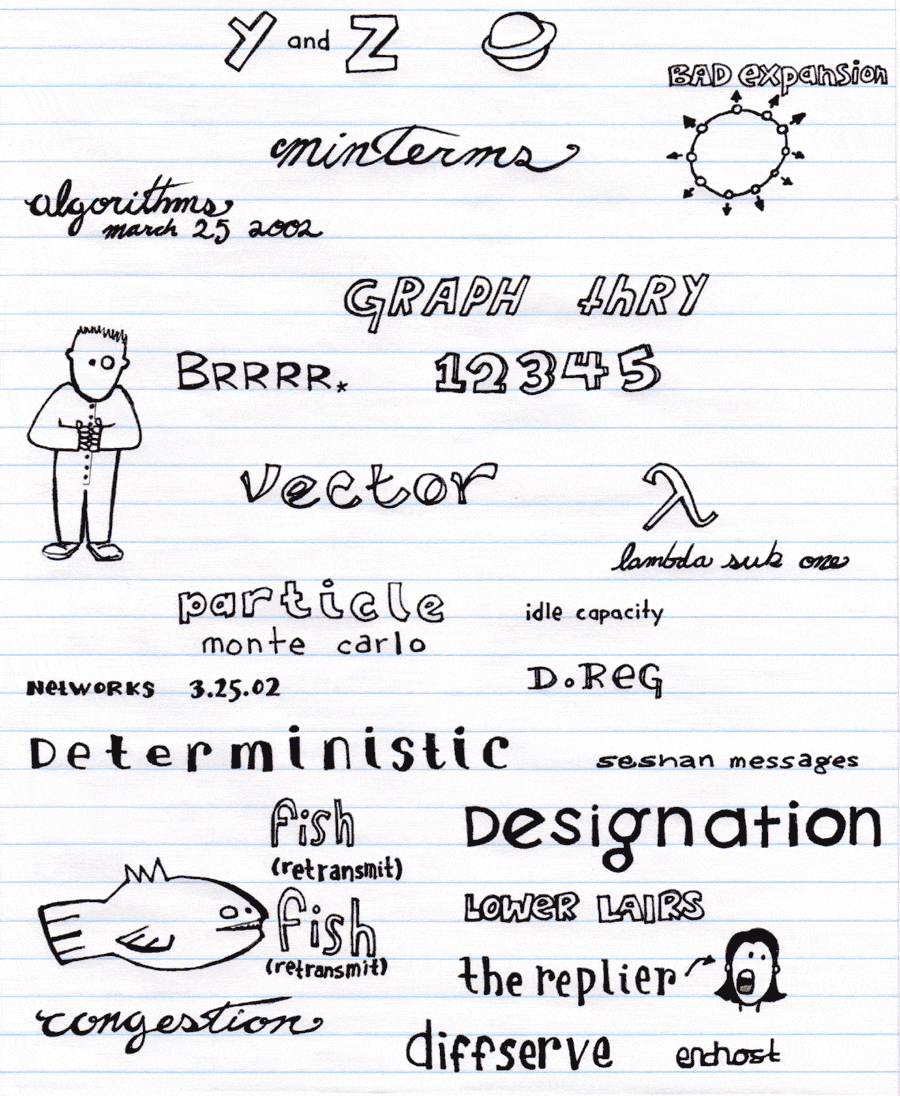 Y and Z
BAD expansion
minterms
algorithms
march 25 2002
GRAPH thRY
BRRRR.*
12345
vector
λ
lambda sub one
particle
monte carlo
idle capacity
NetwORKS 3.25.02
D.ReG
Deterministic
seshan messages
fish
(retransmit)
Designation
fish
(retransmit)
LOWeR LAIRS
the replier
congestion
diffserve
endhost